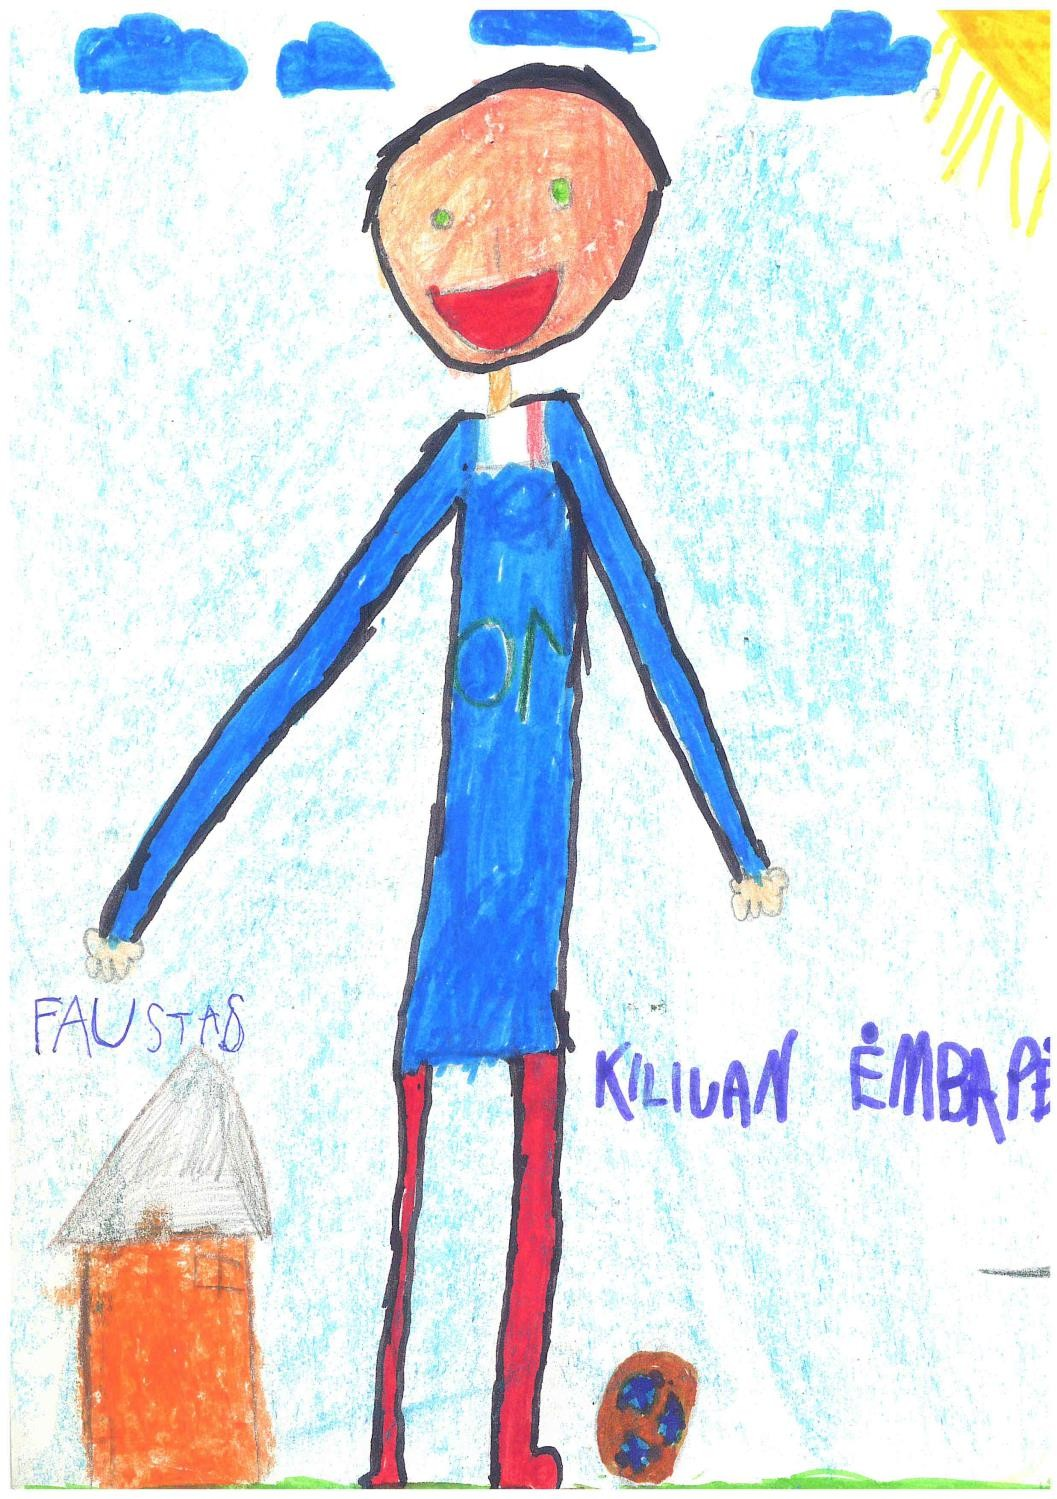 01
FAUSTAS
KILIUAN ĖMBAPĖ